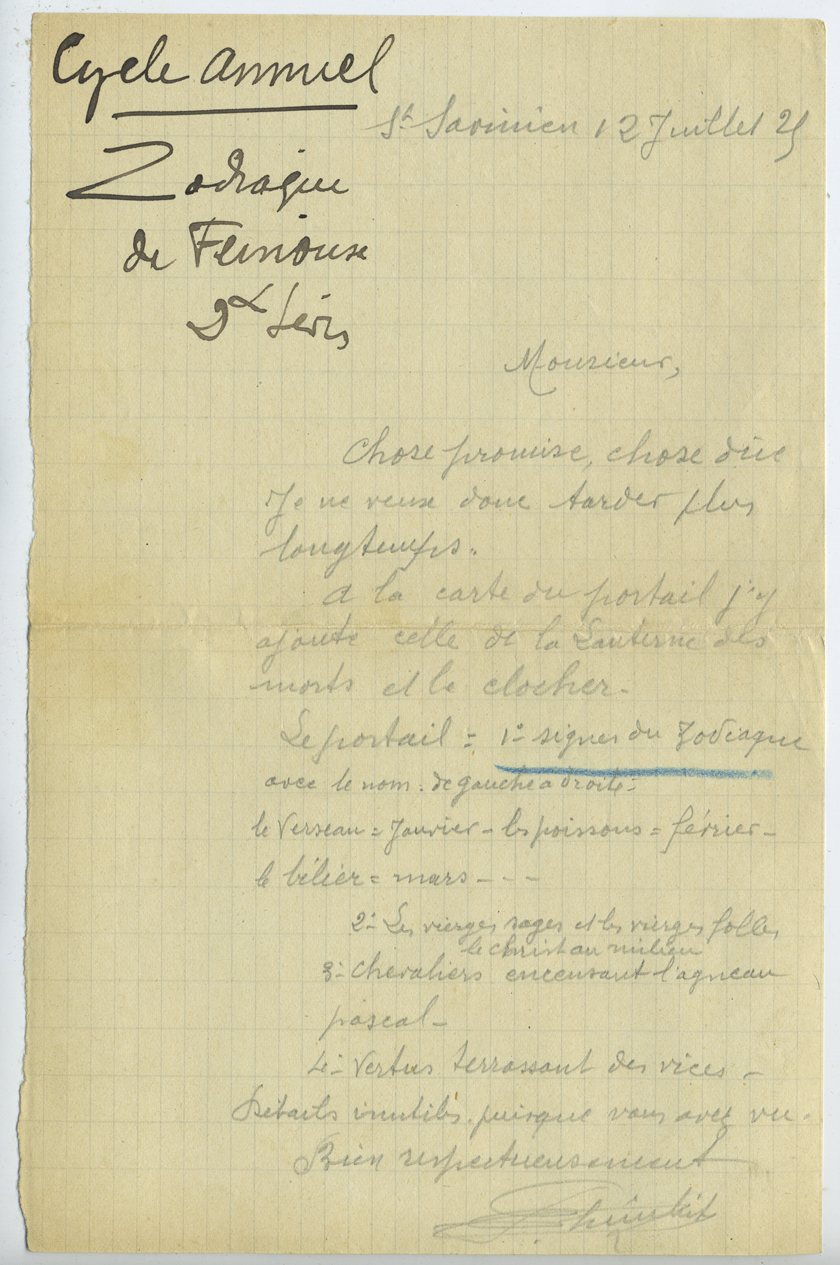 Cycle annuel
St Savinien 12 Juillet 25
Zodiaque
de Fenioux
Dx Sévres
Monsieur,
Chose promise, chose dûe
Je ne veux donc tarder plus
longtemps.
A la carte du portail j'y
ajoute celle de la Lanterne des
morts et le clocher.
Le portail = 1º signes du Zodiaque
avec le nom : de gauche à droite :
le Verseau = Janvier - les poissons = février -
le bélier = mars - - -
2º Les vierges sages et les vierges folles
le Christ au milieu
3º Chevaliers encensant l'agneau
pascal -
4º Vertus terrassant des vices -
Détails inutiles, puisque vous avez vu.
Bien respectueusement